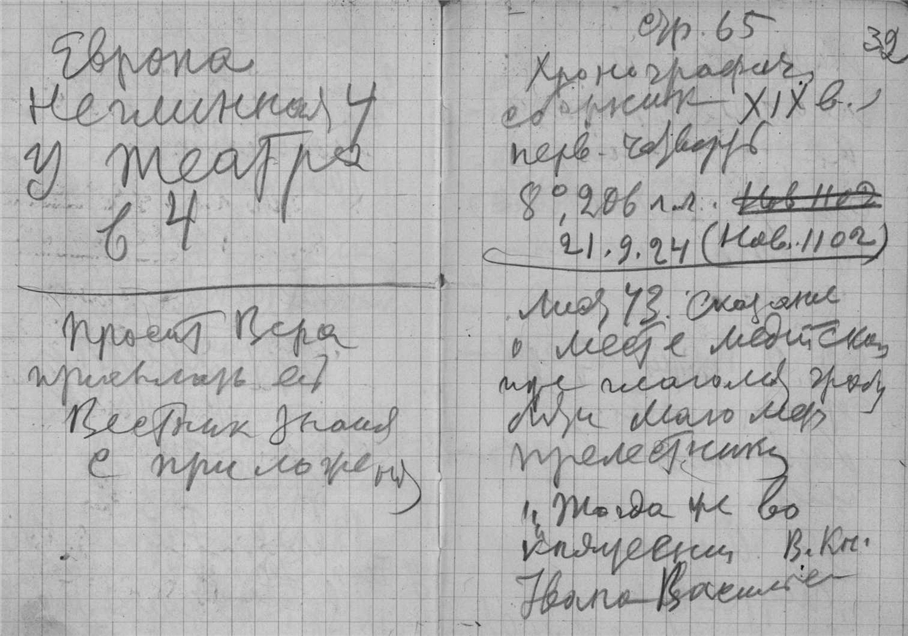 Европа
Неглинная 4
у театра
в 4
Просит Вера
присылать ей
Вестник знания
с приложен
стр. 65
32
Хронографич.
сборник XIX в.,
перв. четверть
8°, 206 лл. Нов 1102
21.9.24 (Нов. 1102)
Лист 43. Сказание
о месте медитском
иде глаголят гробу
быти Магомета
прелестника
"Тогда же во
княжении В. Кн.
Ивана Василие